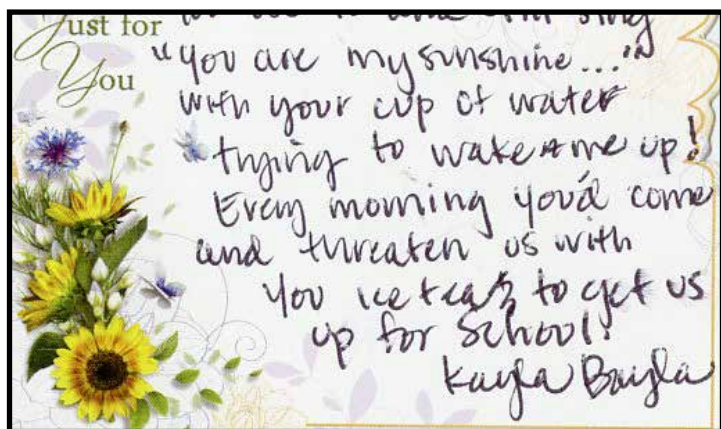 Just for
You
and sing
"you are my sunshine..."
with your cup of water
trying to wake me up!
Every morning you'd come
and threaten us with
you ice teaz to get us
up for School!
Kayla Bayla